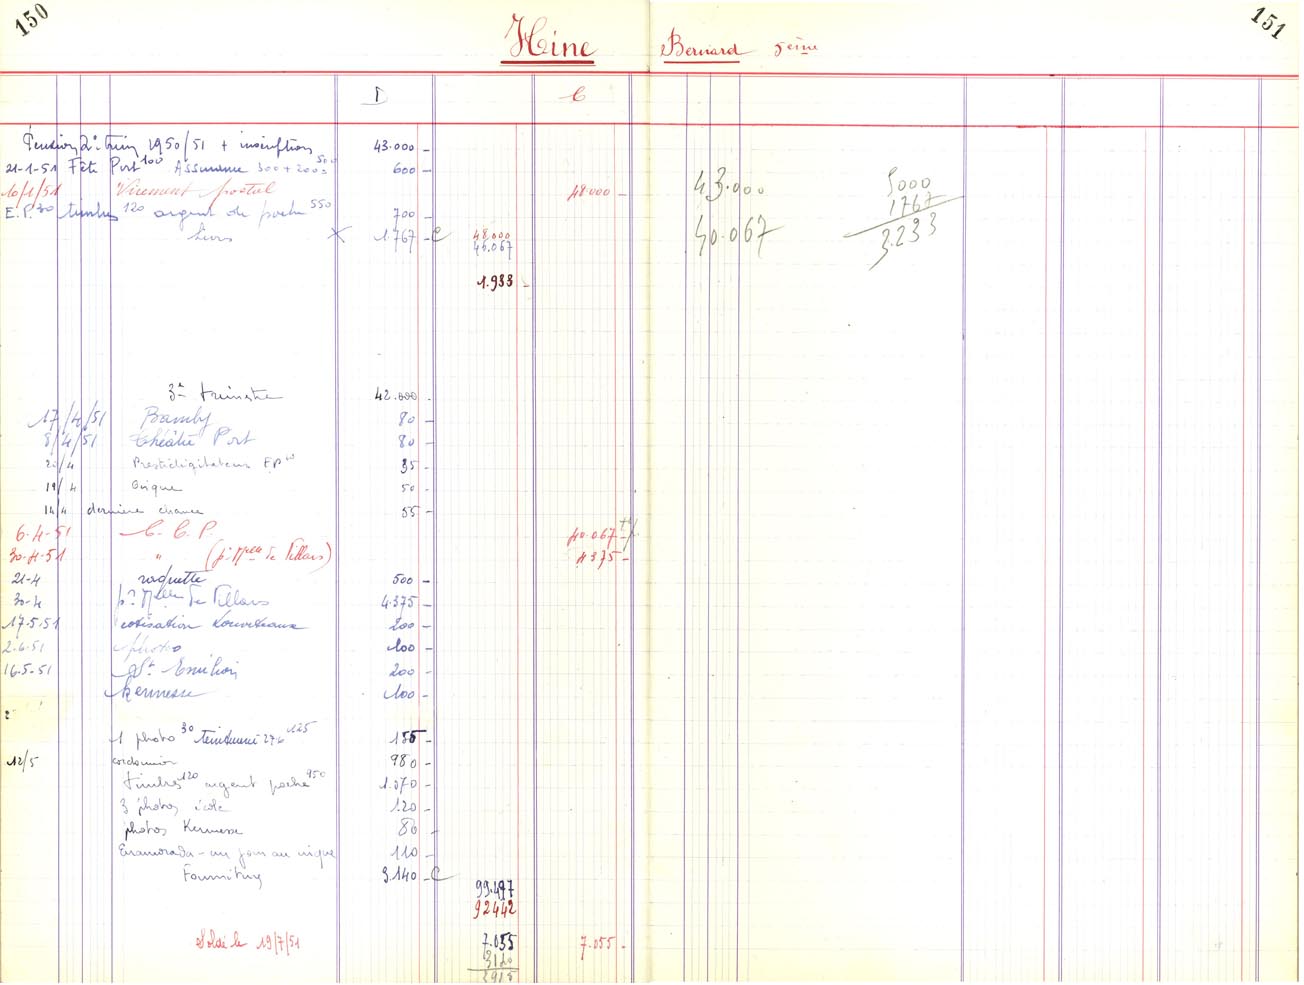 150
Hine Bernard 5ème
151
D C
Pension 2e trim 1950/51 + inscription 43.000
21-1-51 Fête Port 100 Assurance 300 + 200 500 600
10/1/51 Virement postal 48.000
E.P. 30 timbres 120 argent de poche 550 700
X 1.767 C 48.000
1.933
43.000
40.067
5000
1767
3.233
3e trimestre 42.000
17/4/51 Bamby 80
8/4/51 théâtre Port 80
20/4 Prestidigitateur E.P 35
19/4 50
14/4 dernière chance 55
6-4-51 C. C. P. 40.067
30-4-51 " (pr Melle de Villars) 4375
21-4 raquette 500
30-4 pr Melle de Villars 4.375
17.5.51 cotisation Louveteaux 200
2.6.51 photo 100
16.5-51 St Emilion 200
Kermesse 100
1 photo 30 125 155
12/5 cordonnier 980
timbres 120 argent poche 950 1.070
3 photos école 120
photos Kermesse 80
Enamorada - un jour au cirque 110
Fournitures 3.140 C
99.497
92442
Soldé le 19/7/51 7.055 7.055
3120
3915